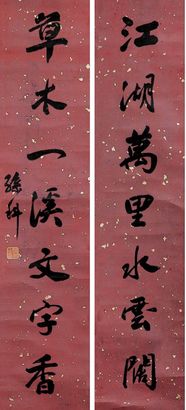 江湖萬里水雲闊
草木一溪文字香
孫科